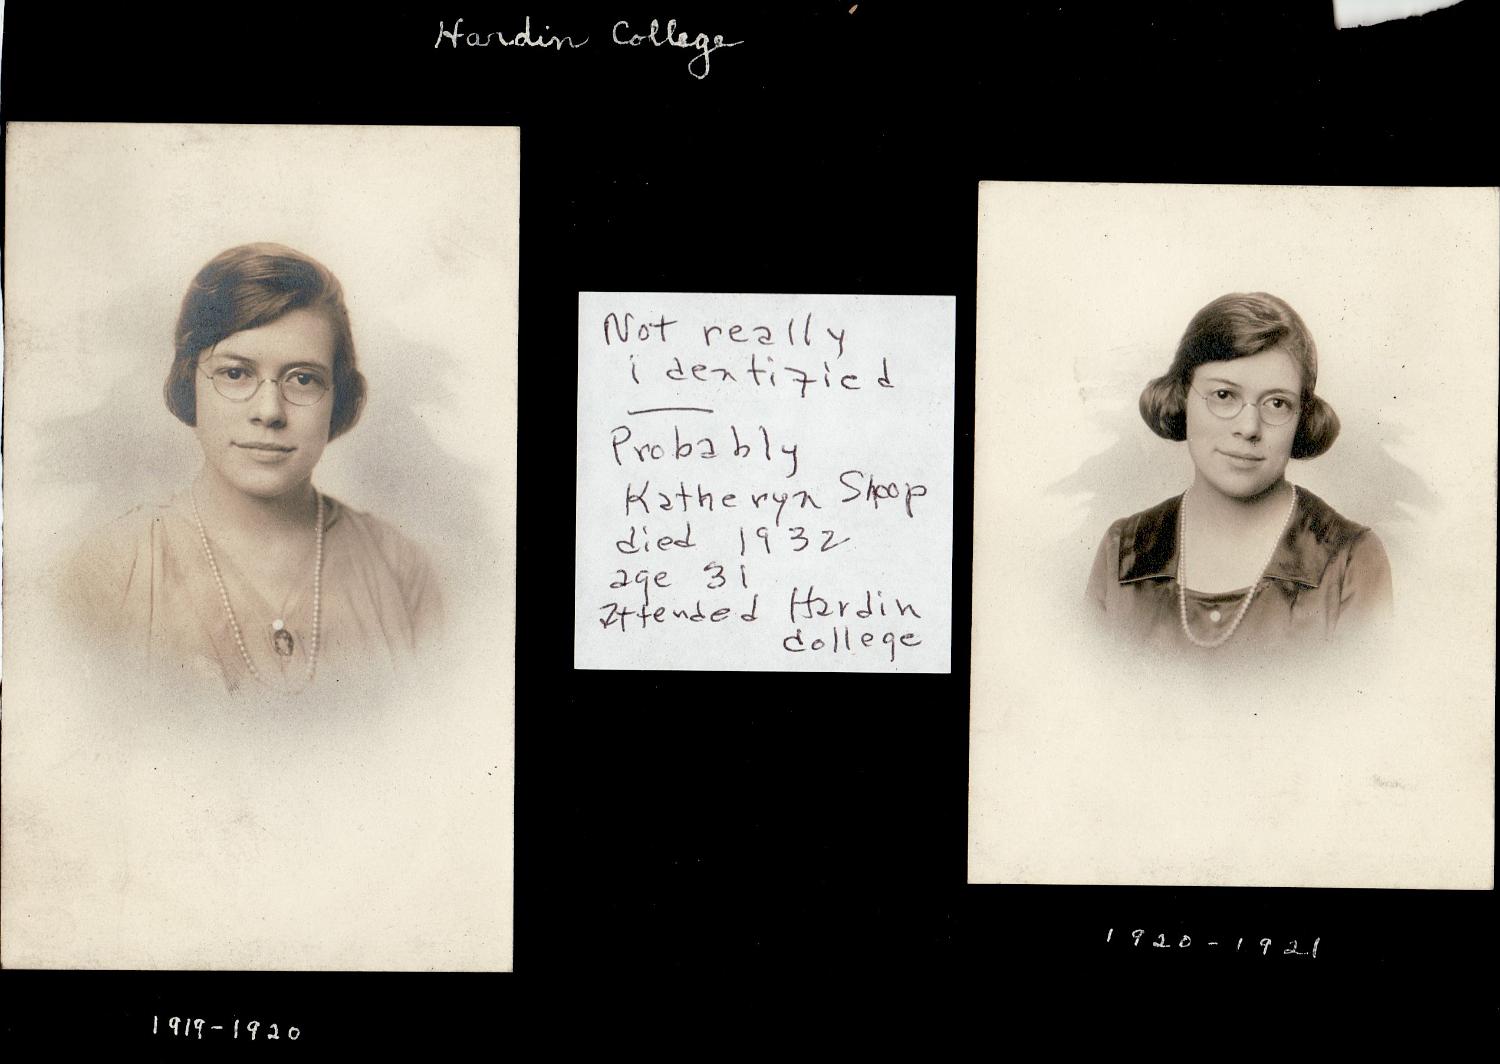 Hardin College
Not really
identified
Probably
Katheryn Shoop
died 1932
age 31
attended Hardin
college
1920-1921
1919-1920